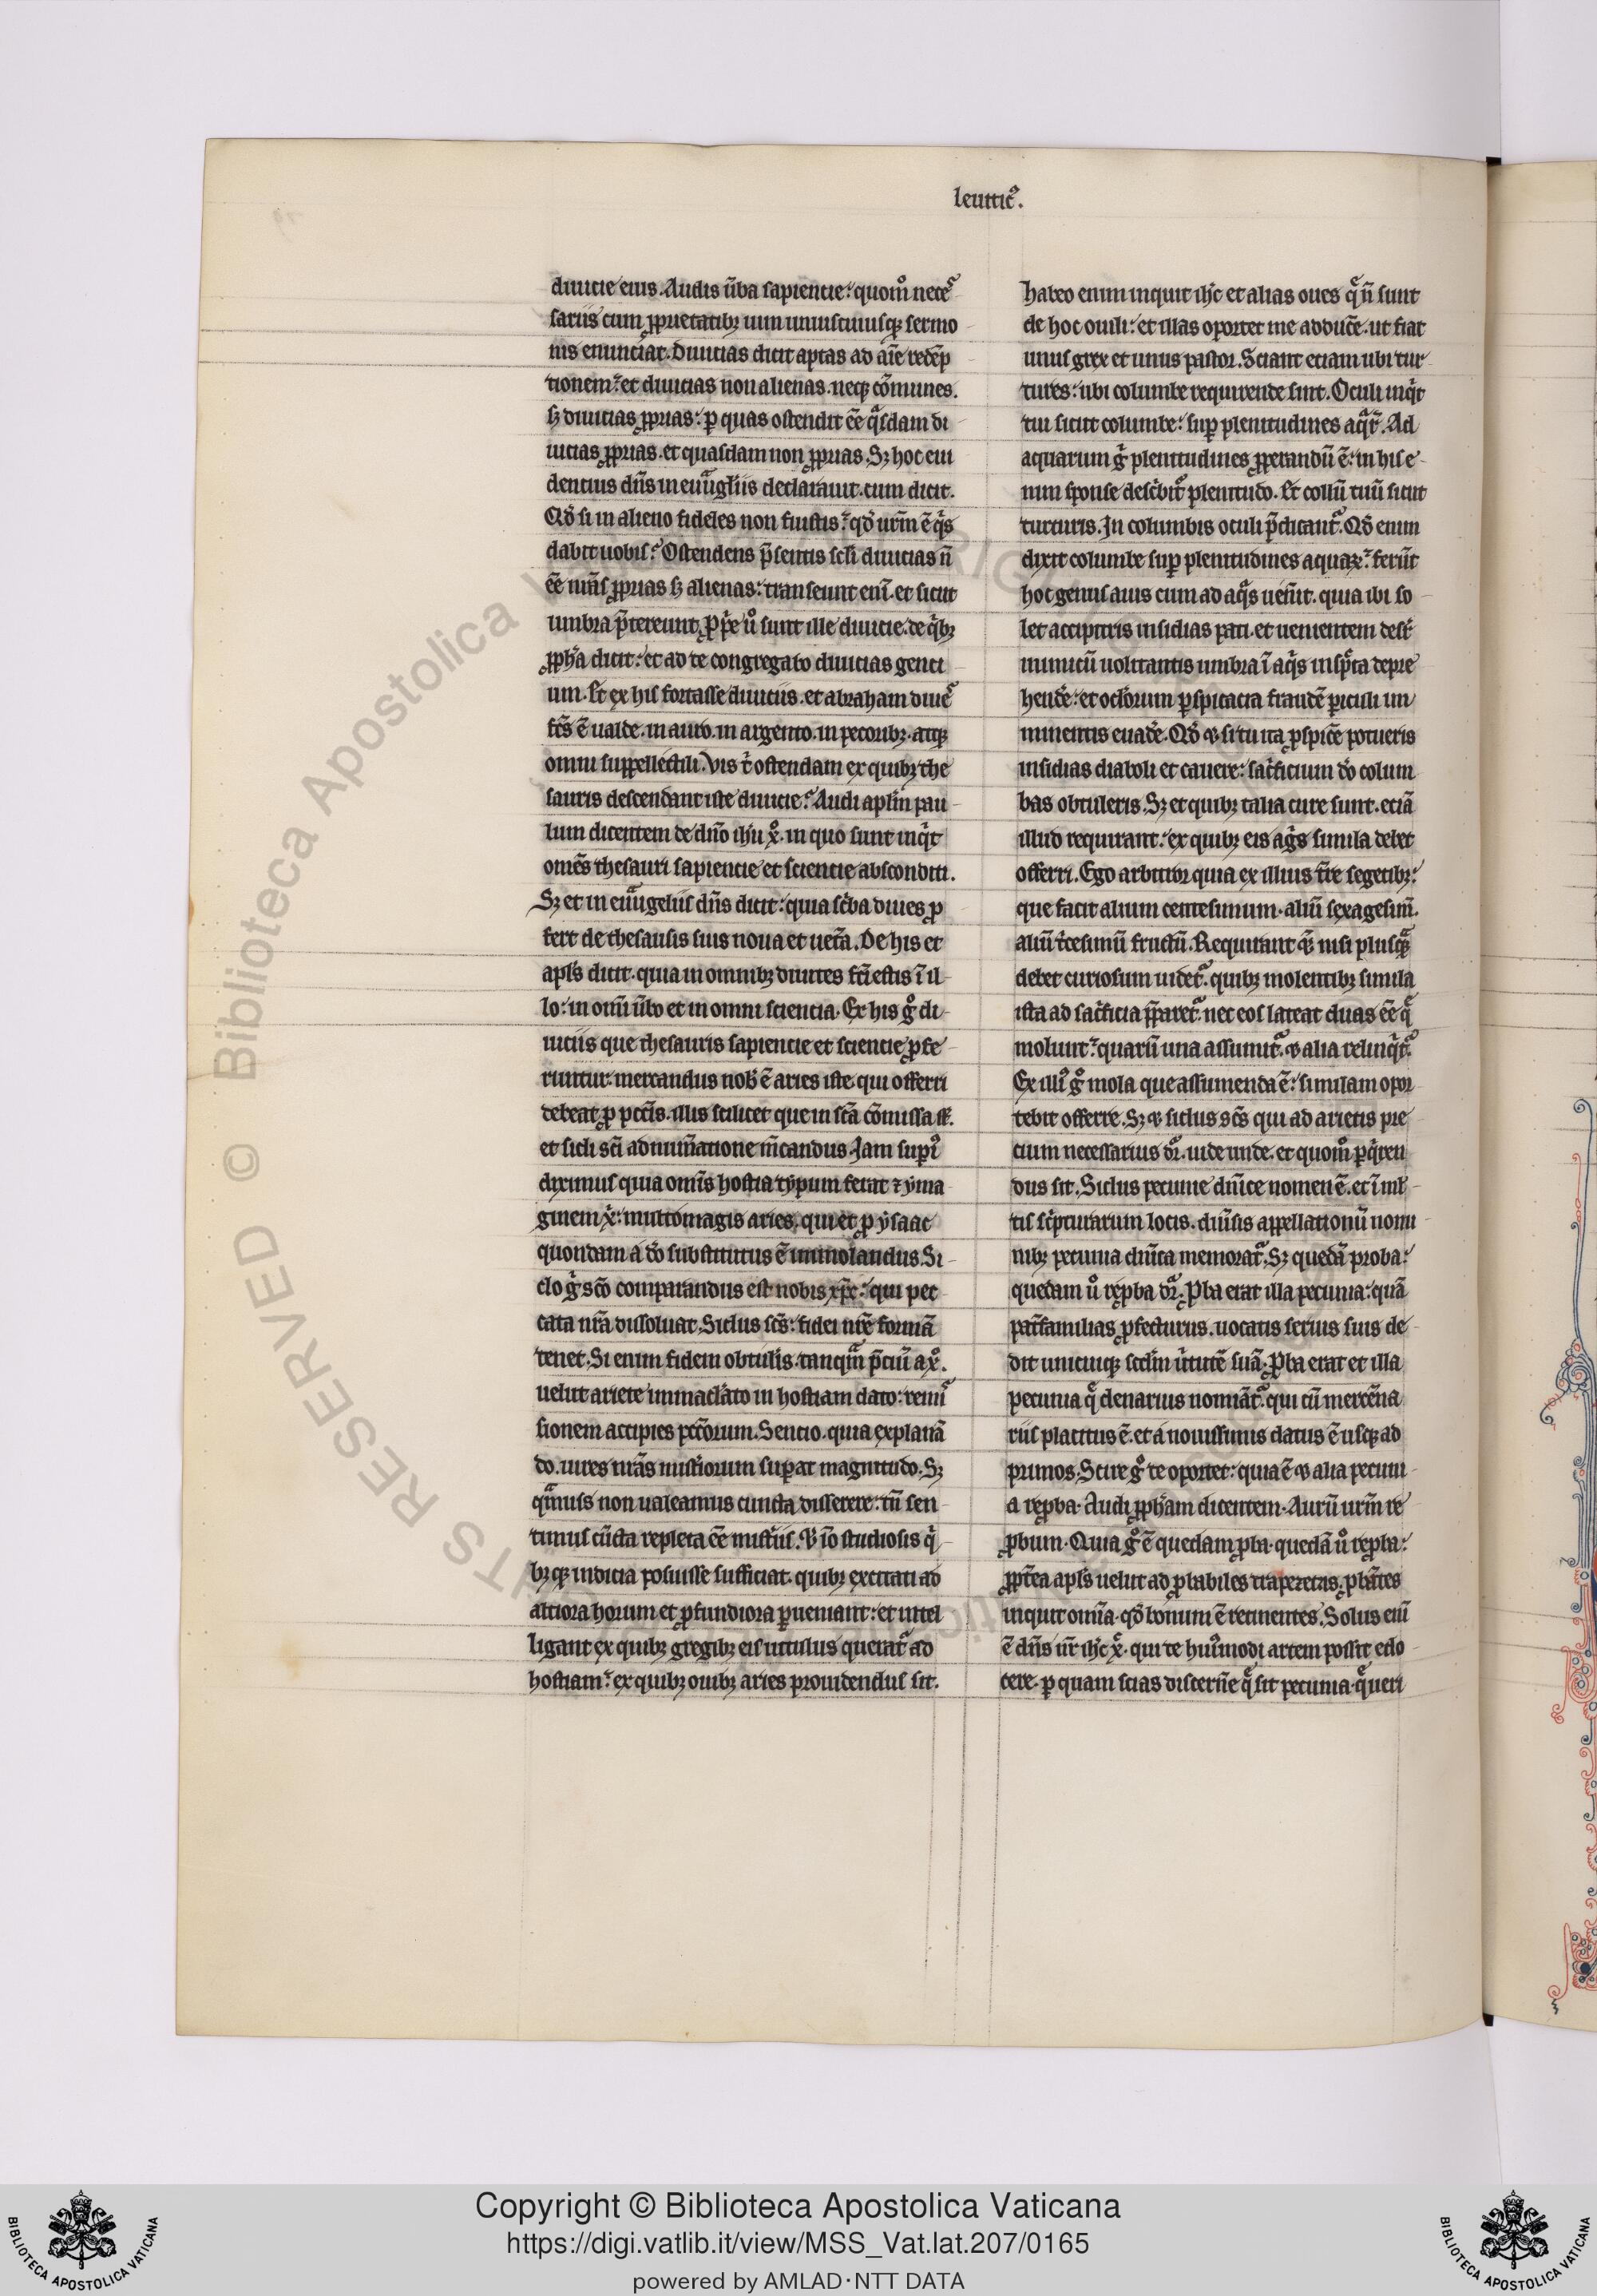 leuitic᷒.
diuicie eius. Audis ũba sapiencie: quom̊ nece
sariis cum ꝓprietatibꝫ uim uniuscuiusqꝫ sermo
nis enunciat. Diuicias dicit aptas ad aīe redẽp
tionem: et diuicias non alienas. neqꝫ cõmunes.
sꝫ diuicias ꝓprias: ꝑ quas ostendit ẽe qͣsdam di
uicias ꝓprias. et quasdam non ꝓprias. Sꝫ hoc eui
dentius dñs in euͣngliis declarauit. cum dicit.
Qd̓ si in alieno fideles non fuistis: qd̓ ur̃m ẽ qͥs
dabit uobis? Ostendens p̃sentis scl̓i diuicias ñ
ẽe nr̃as ꝓprias sꝫ alienas: transeunt enĩ. et sicut
umbra p̃tereunt. ꝓpͥe ů sunt ille diuicie. de qͥbꝫ
ꝓph̓a dicit: et ad te congregabo diuicias genti
um. Et ex his fortasse diuiciis. et abraham diue
fc̃s ẽ ualde. in auro. in argento. in pecoribꝫ. atqꝫ
omni suppellectili. Vis t̓ ostendam ex quibꝫ the
sauris descendant iste diuicie? Audi apl̓m pau
lum dicentem de dño ih̓u xͦ. in quo sunt inqͥt
om̃es thesauri sapiencie et sciencie absconditi.
Sꝫ et in euͣngeliis dñs dicit: quia sc̓ba diues ꝓ
fert de thesausis suis noua et uet̃a. De his et
apl̓s dicit. quia in omnibꝫ diuites fc̃i estis ĩ il
lo: in om̃i ũbo et in omni sciencia. Ex his gͦ di
uiciis que thesauris sapiencie et sciencie ꝓfe
runtur. mercandus nob̓ ẽ aries iste qui offerri
debeat ꝓ pcc̃is. illis scilicet que in sc̃a cõmissa sͭ.
et sicli sc̃i adnum̃atione m̃candus. Jam supͥ᷒
diximus quia om̃is hostia typum ferat ⁊ yma
ginem xͥ: multomagis aries. qui et ꝓ ysaac
quondam a dõ substitutus ẽ immolandus. Si
clo gͥ sc̃o comparandus est nobis xp̃c: qui pec
cata nr̃a dissoluat. Siclus sc̃s: fidei nr̃e formã
tenet. Si enim fidem obtul̓is. tanqͣm p̃ciũ a xͦ.
uelut ariete immacl̓ato in hostiam dato: remi
sionem accipies pcc̃orum. Sentio. quia explanã
do. uires nr̃as mist̓iorum suꝑat magnitudo. Sꝫ
qͣmuis non ualeamus cuncta disserere: tñ sen
timus cũcta repleta ẽe mist̓iis. Vñ ĩo studiosis qͥ
bꝫqꝫ indicia posuisse sufficiat. quibꝫ excitati ad
altiora horum et ꝓfundiora ꝑueniant: et intel
ligant ex quibꝫ gregibꝫ eis uitulus queratͣ ad
hostiam: ex quibꝫ ouibꝫ aries prouidendus sit.
habeo enim inquit ih̓c et alias oues qͣ ñ sunt
de hoc ouili: et illas oportet me adduc̃e. ut fiat
unus grex et unus pastor. Sciant etiam ubi tur
tures: ubi columbe requirende sint. Oculi inqͥt
tui sicut columbe: suꝑ plenitudines aqͣꝝ. Ad
aquarum gͥ plenitudines ꝓperandũ ẽ: in his e
nim sponse desc̓bit᷒ plenitudo. Et collũ tuũ sicut
turturis. In columbis oculi p̃dicantͣ. Qd̓ enim
dixit columbe suꝑ plenitudines aquaꝝ: ferũt
hoc genus auis cum ad aqͣs uen̓it. quia ibi so
let accipitris insidias pati. et uenientem desr̓
inimicũ uolitantis umbra ĩ aqͥs insꝑta depre
hend̓e: et ocl̓orum ꝑspicacia fraudẽ ꝑiculi im
minentis euad̓e. Qd̓ ⁊ si tu ita ꝓspic̃e potueris
insidias diaboli et cauere: sac̓ficium dõ colum
bas obtuleris. Sꝫ et quibꝫ talia cure sunt. etiã
illud requirant: ex quibꝫ eis agͥs simila debet
offerri. Ego arbitror quia ex illius t̃re segetibꝫ:
que facit alium centesimum. aliũ sexagesim̃.
aliũ t̓cesimũ fructũ. Requirant qͣ nisi plusqͣꝫ
debet curiosum uidetͣ. quibꝫ molentibꝫ simila
ista ad sac̓ficia p̃paretͣ. nec eos lateat duas ẽe qͣ
molunt: quarũ una assumitͣ. ⁊ alia relinqͥtͣ.
Ex illiͥ gͦ mola que assumenda ẽ: similam opor
tebit offerre. Sꝫ ⁊ siclus sc̃s qui ad arietis pre
cium necessarius dr̃. uide unde. et quom̊ ꝑqͥren
dus sit. Siclus pecunie dñice nomen ẽ. et ĩ ml̓
tis sc̓pturarum locis. diũsis appellationũ nomi
nibꝫ pecunia dñica memoratͣ. Sꝫ quedã proba:
quedam ů reꝓba dr̃. ꝓba erat illa pecunia: quã
pat̃familias ꝓfecturus. uocatis seruis suis de
dit unicuiqꝫ scd̓m ũtutẽ suã. ꝓba erat et illa
pecunia qͣ denarius nominãtͣ. qui cũ mercẽna
riis placitus ẽ. et a nouissimis datus ẽ usqꝫ ad
primos. Scire gͦ te oportet: quia ẽ ⁊ alia pecuni
a reꝓba. Audi ꝓph̓am dicentem. Aurũ ur̃m re
ꝓbum. Quia gͦ ẽ quedam ꝓba. quedã ů reꝓba:
ꝓpt̃ea apl̓s uelut ad ꝓbabiles trapezetas. ꝓbãtes
inquit om̃ia. qd̓ bonum ẽ retinentes. Solus enĩ
ẽ dñs ñr ih̓c xͥ. qui te hui᷒modi artem possit edo
cere. ꝑ quam scias discerñe qͣ sit pecunia. qͣ ueri
Copyright © Biblioteca Apostolica Vaticana
https://digi.vatlib.it/view/MSS_Vat.lat.207/0165
powered by AMLAD·NTT DATA